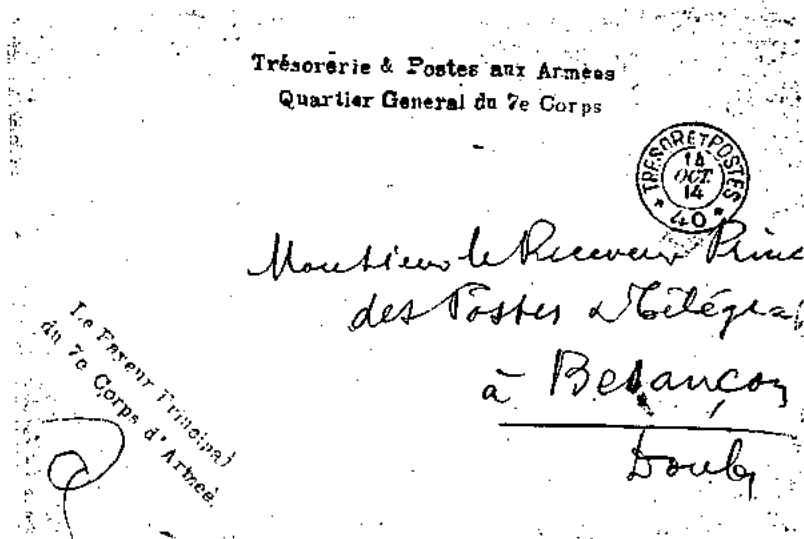 Trésorerie & Postes aux Armées
Quartier General du 7e Corps
TRESOR ET POSTES
14
OCT.
14
* 40 *
Monsieur le Receveur Princ
des Postes & Télégra
à Besançon
Doubs
Le Payeur Principal
du 7e Corps d'Armée.